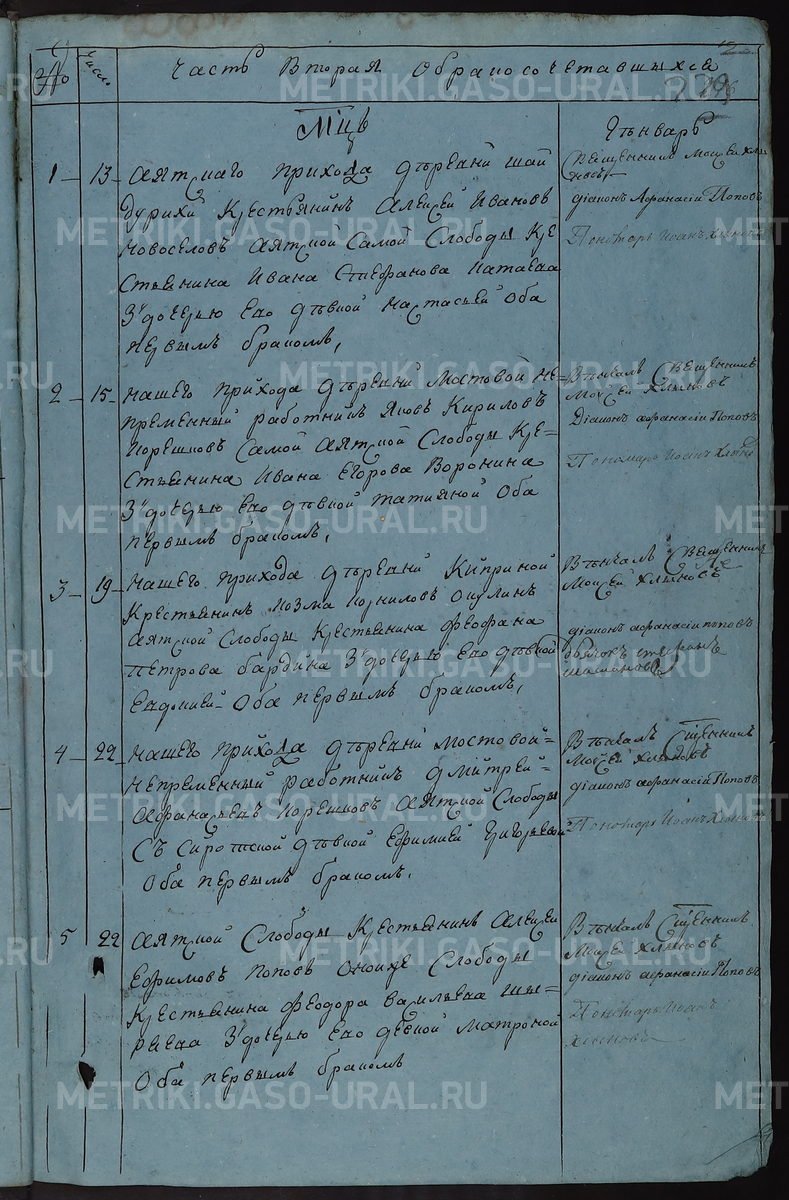 № Число Часть Вторая О бракосочетавшыхся
Мцъ Генварь
1 13 Аятскаго прихода дѣревни Шай
дурихи Крестьянинъ Алексей Ивановъ
Новоселовъ Аятской Самой Слободы Кре
стьянина Ивана Стефанова Патаева
З'дочерью Его дѣвкой Настасьей Оба
первымъ бракомъ,
Свещенникъ Моисей Хлы
новъ
діаконъ Афанасій Поповъ
Пономарь Иоанъ Хлыновъ
2 15 Нашего прихода дѣревни Мостовой не=
пременный работникъ Яковъ Кириловъ
Порешковъ Самой Аятской Слободы Кре=
стьянина Ивана Егорова Воронина
З'дочерью Его дѣвкой Татияной Оба
первымъ бракомъ,
Вѣнчалъ Свещенникъ
Моисей Хлыновъ
Діаконъ Афанасіи Поповъ
Пономарь Иоанъ Хлыновъ
3 19 Нашего прихода дѣревни Киприной
Крестьянинъ Козма Корниловъ
Аятской Слободы Крестьянина Феофана
Петрова Бардина З'дочерью Его дѣвкой
Евдокией Оба первымъ бракомъ,
Вѣнчалъ Свещенникъ
Моисей Хлыновъ
діаконъ Афанасіи Поповъ
дьячокъ Стефанъ
4 22 Нашего прихода дѣревни Мостовой=
Непременный работникъ Дмитрей=
Афанасьевъ Порешковъ Аятской Слободы
Съ Сиротской дѣвкой Ефимией Григорьевой
Оба первымъ бракомъ.
Вѣнчалъ Сщенникъ
Моисей Хлыновъ
діаконъ Афанасіи Поповъ
Пономарь Иоанъ Хлыновъ
5 22 Аятской Слободы Крестьянинъ Алексей
Ефимовъ Поповъ Оной же Слободы
Крестьянина Феодора Васильева
З'дочерью Его девкой Матроной
Оба первымъ бракомъ
Вѣнчалъ Сщенникъ
Моисей Хлыновъ
діаконъ Афанасіи Поповъ
Пономарь Иоанъ
Хлыновъ
METRIKI.GASO-URAL.RU